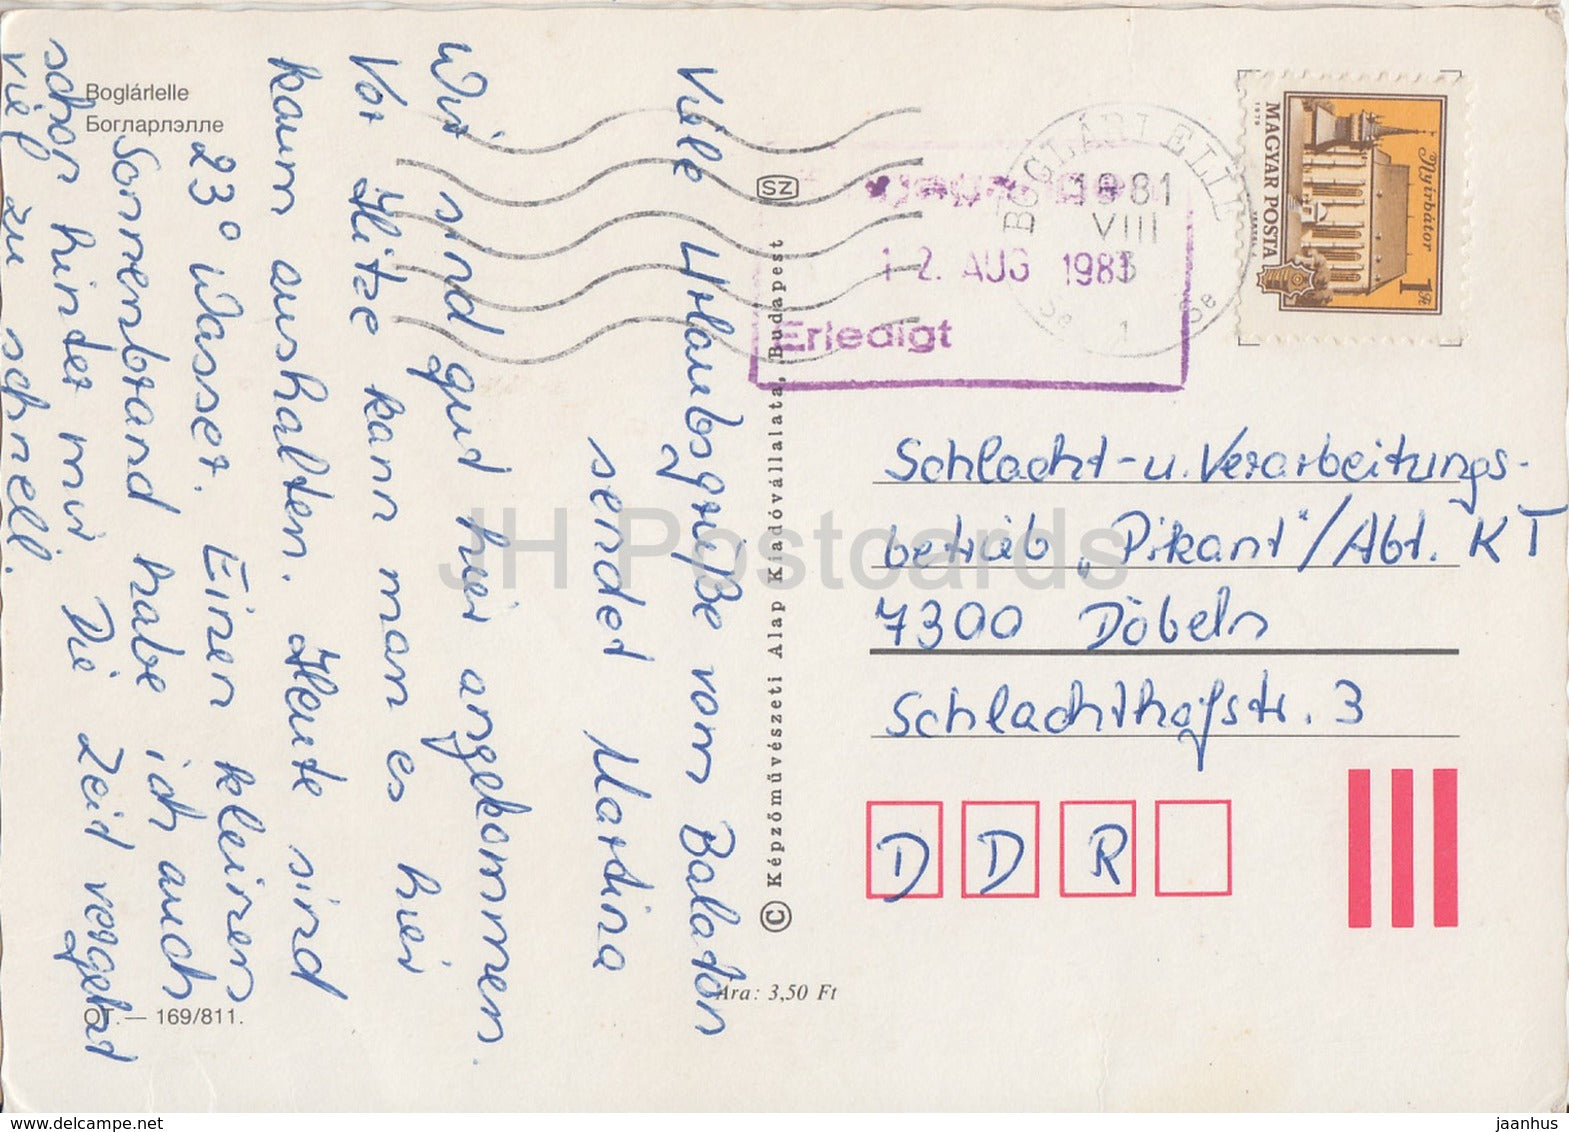 Boglárlelle
Богларлэлле
Viele Urlaubsgrüße vom Balaton
sendet Martina
Wir sind gut hier angekommen.
Vor Hitze kann man es hier
kaum aushalten. Heute sind
23° Wasser. Einen kleinen
Sonnenbrand habe ich auch
schon hinter mir. Die Zeit vergeht
viel zu schnell.
OT. — 169/811.
SZ
© Képzőművészeti Alap Kiadóvállalata, Budapest
Ára: 3,50 Ft
12. AUG 1981
Erledigt
BOGLÁRLELLE
1981
VIII
1
Nyírbátor
1 Ft
MAGYAR POSTA
1979
Schlacht- u. Verarbeitungs-
betrieb „Pikant“/Abt. KT
7300 Döbeln
Schlachthofstr. 3
D D R
JH Postcards
jaanhus